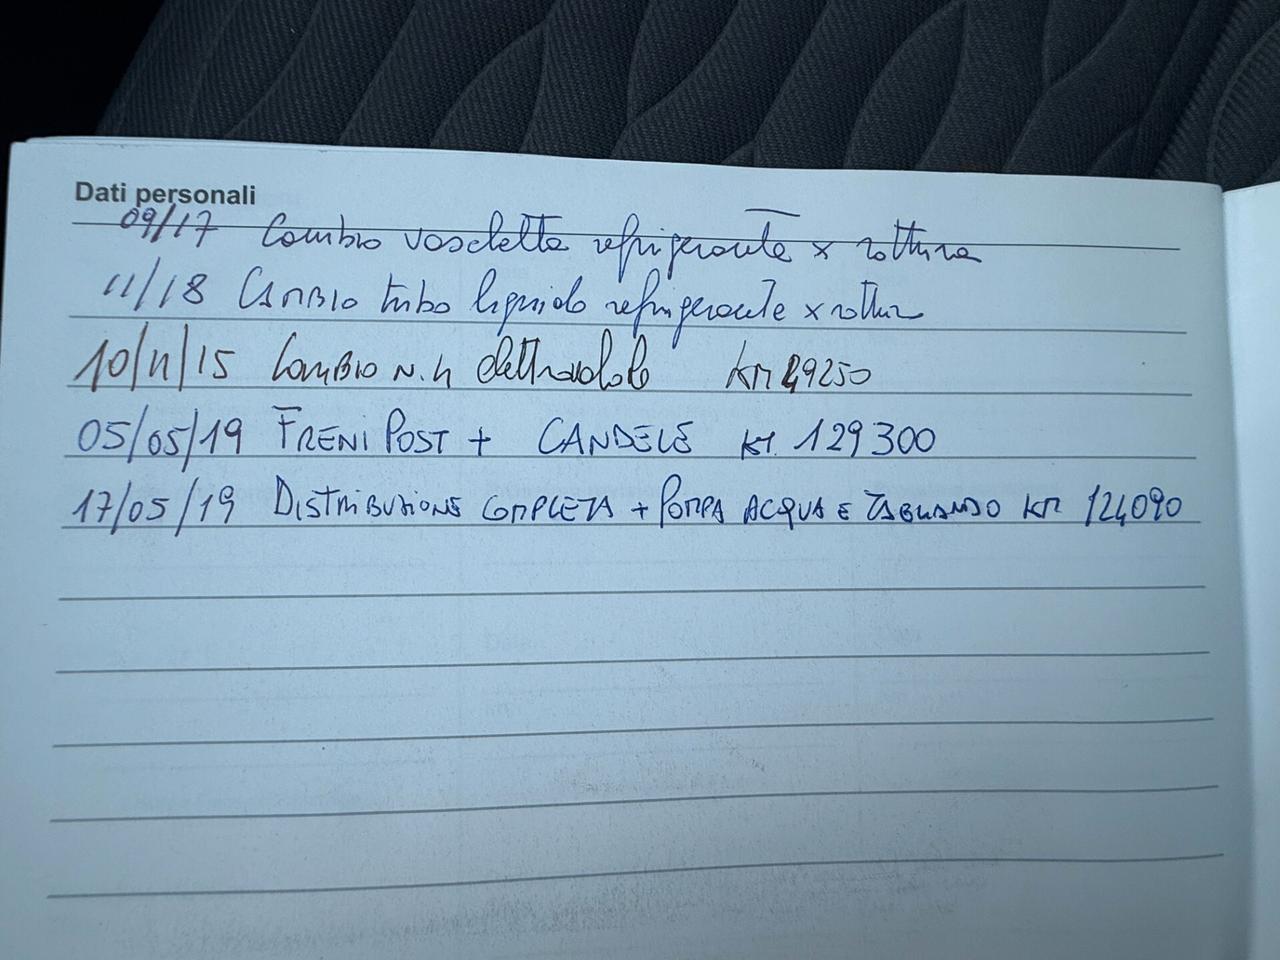 Dati personali
09/17 Cambio vaschetta refrigerante x rottura
11/18 CAMBIO tubo liquido refrigerante x rottur
10/11/15 CamBio N.4 elettrovalvole KM 49250
05/05/19 FRENI POST + CANDELE KM. 129300
17/05/19 DISTRIBUZIONE COMPLETA + POMPA ACQUA E TAGLIANDO KM 124090